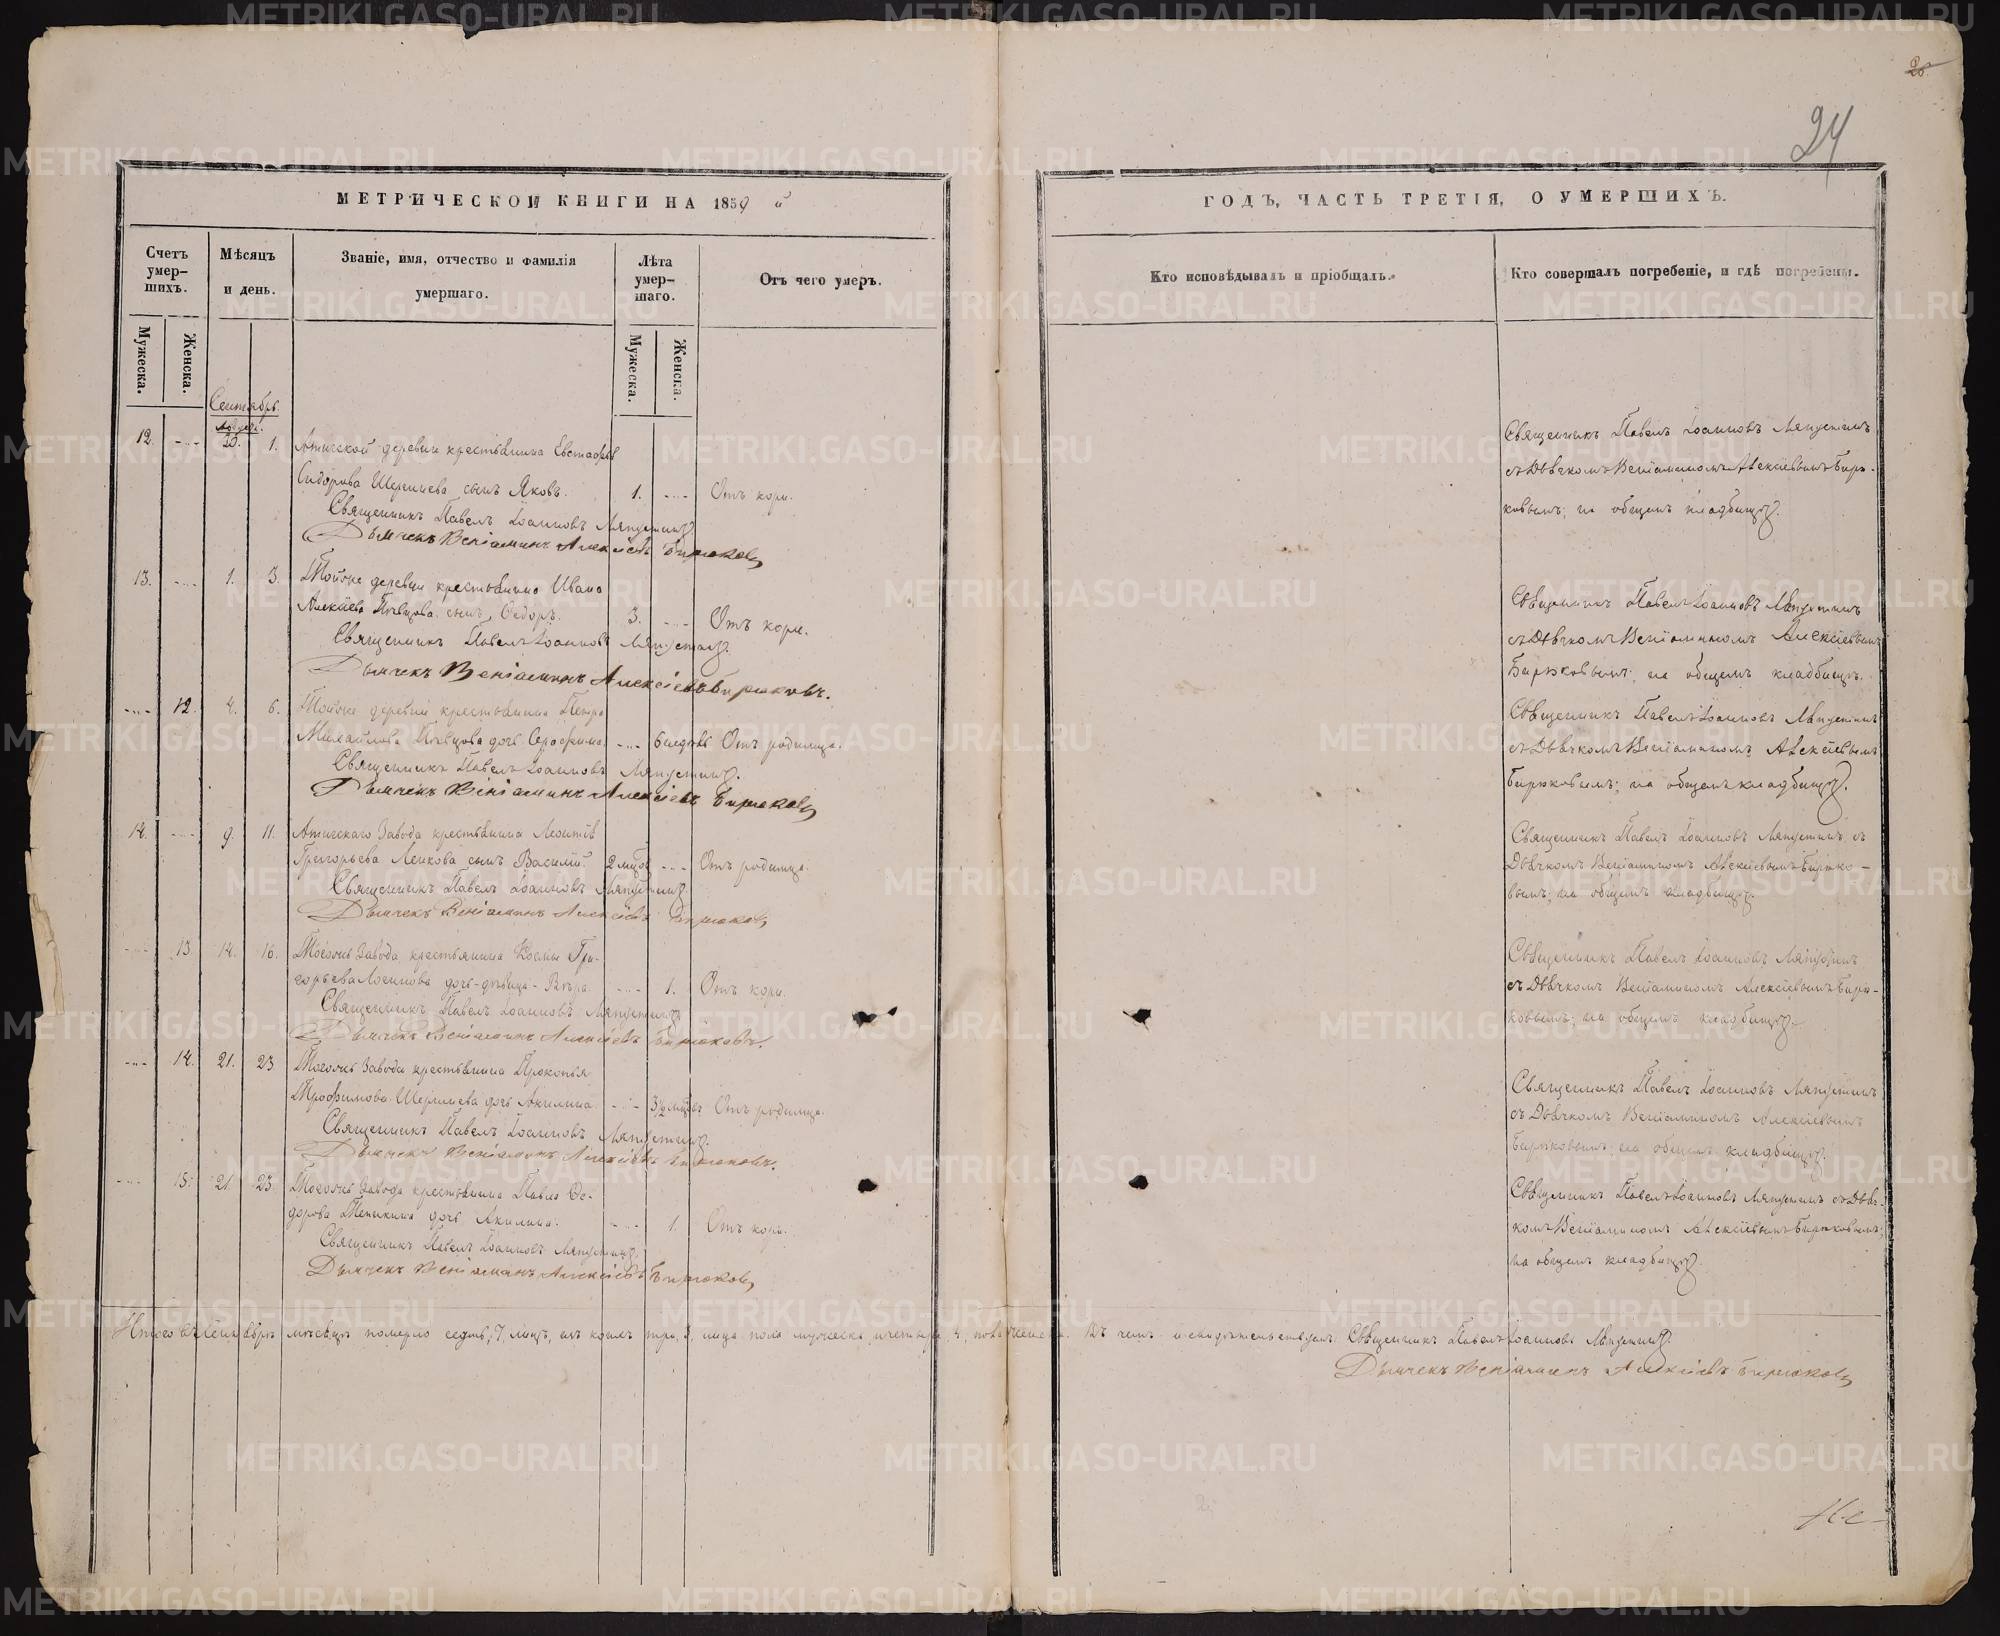 24
МЕТРИЧЕСКОЙ КНИГИ НА 1859 й
ГОДЪ, ЧАСТЬ ТРЕТІЯ, О УМЕРШИХЪ.
Счетъ умер-шихъ.
Мѣсяцъ и день.
Званіе, имя, отчество и фамилія умершаго.
Лѣта умер-шаго.
Отъ чего умеръ.
Кто исповѣдывалъ и пріобщалъ.
Кто совершалъ погребеніе, и гдѣ погребены.
Мужеска.
Женска.
Мужеска.
Женска.
Сентябрь.
12. 30. 1. деревни крестьянина Евстафія
Сидорова сынъ Яковъ. 1. Отъ кори.
Священникъ Павелъ Іоанновъ Ляпустинъ
Дьячекъ Веніаминъ Алексіевъ Бирюковъ
Священникъ Павелъ Іоанновъ Ляпустинъ
съ Дьячкомъ Веніаминомъ Алексіевымъ Бирю-
ковымъ; на общемъ кладбищѣ.
13. 1. 3. Тойже деревни крестьянина Ивана
Алексіева Пѣвцова сынъ Ѳедоръ. 3. Отъ кори.
Священникъ Павелъ Іоанновъ Ляпустинъ.
Дьячекъ Веніаминъ Алексіевъ Бирюковъ.
Священникъ Павелъ Іоанновъ Ляпустинъ
съ Дьячкомъ Веніаминомъ Алексіевымъ
Бирюковымъ; на общемъ кладбищѣ.
12. 4. 6. Тойже деревни крестьянина Петра
Михайлова Пѣвцова дочь Серафима. 6 недѣль Отъ родимца.
Священникъ Павелъ Іоанновъ Ляпустинъ.
Дьячекъ Веніаминъ Алексіевъ Бирюковъ
Священникъ Павелъ Іоанновъ Ляпустинъ
съ Дьячкомъ Веніаминомъ Алексіевымъ
Бирюковымъ; на общемъ кладбищѣ.
14. 9. 11. Завода крестьянина Леонтія
Григорьева сынъ Василій. Отъ родимца.
Священникъ Павелъ Іоанновъ Ляпустинъ.
Дьячекъ Веніаминъ Алексіевъ Бирюковъ
Священникъ Павелъ Іоанновъ Ляпустинъ съ
Дьячкомъ Веніаминомъ Алексіевымъ Бирюко-
вымъ; на общемъ кладбищѣ.
13. 14. 16. Тогожъ Завода крестьянина Космы Гри-
горьева дочь-дѣвица-Вѣра. 1. Отъ кори.
Священникъ Павелъ Іоанновъ Ляпустинъ
Дьячекъ Веніаминъ Алексіевъ Бирюковъ.
Священникъ Павелъ Іоанновъ Ляпустинъ
съ Дьячкомъ Веніаминомъ Алексіевымъ Бирю-
ковымъ; на общемъ кладбищѣ.
14. 21. 23. Тогожъ Завода крестьянина Прокопья
Трофимова дочь Акилина. 3½ Отъ родимца.
Священникъ Павелъ Іоанновъ Ляпустинъ.
Дьячекъ Веніаминъ Алексіевъ Бирюковъ.
Священникъ Павелъ Іоанновъ Ляпустинъ
съ Дьячкомъ Веніаминомъ Алексіевымъ
Бирюковымъ; на общемъ кладбищѣ.
15. 21. 23. Тогожъ Завода крестьянина Павла Ѳе-
дорова дочь Акилина. 1. Отъ кори.
Священникъ Павелъ Іоанновъ Ляпустинъ.
Дьячекъ Веніаминъ Алексіевъ Бирюковъ
Священникъ Павелъ Іоанновъ Ляпустинъ съ Дьяч-
комъ Веніаминомъ Алексіевымъ Бирюковымъ;
на общемъ кладбищѣ.
Итого въ Сентябрѣ мѣсяцѣ померло семь, 7, лицъ, изъ коихъ три, 3, лица пола мужеска и четыре, 4, пола женска. Въ чемъ и свидѣтельствуемъ: Священникъ Павелъ Іоанновъ Ляпустинъ.
Дьячекъ Веніаминъ Алексіевъ Бирюковъ
METRIKI.GASO-URAL.RU